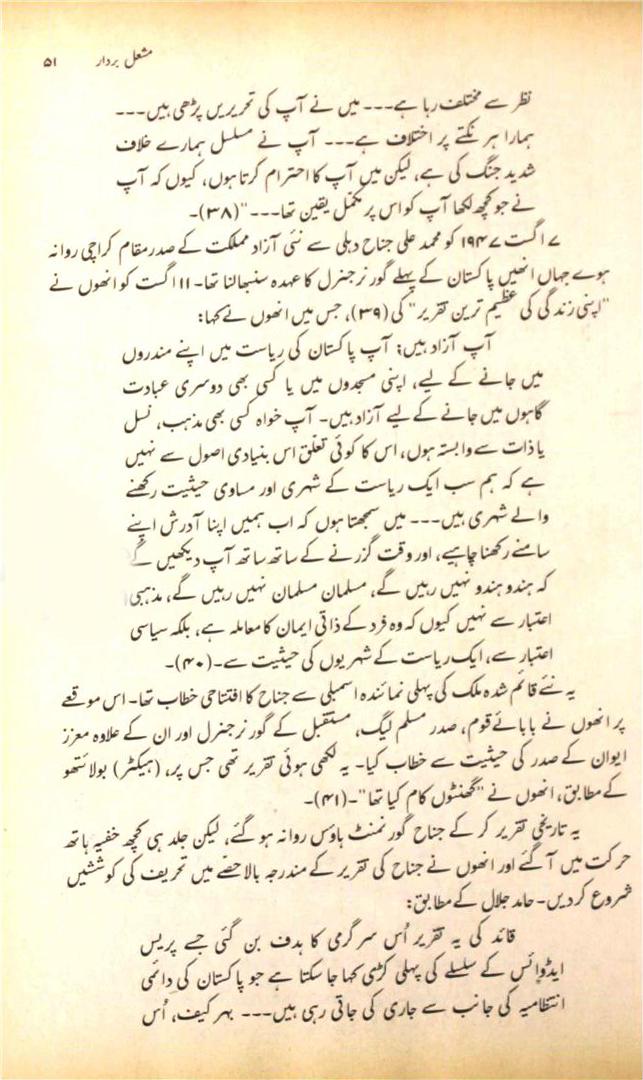 مشعل بردار ۵۱
نظر سے مختلف رہا ہے۔۔۔ میں نے آپ کی تحریریں پڑھی ہیں۔۔۔
ہمارا ہر نکتے پر اختلاف ہے۔۔۔ آپ نے مسلسل ہمارے خلاف
شدید جنگ کی ہے، لیکن میں آپ کا احترام کرتا ہوں، کیوں کہ آپ
نے جو کچھ لکھا آپ کو اس پر مکمل یقین تھا۔۔۔"(۳۸)۔
۷ اگست ۱۹۴۷ کو محمد علی جناح دہلی سے نئی آزاد مملکت کے صدر مقام کراچی روانہ
ہوے جہاں انھیں پاکستان کے پہلے گورنر جنرل کا عہدہ سنبھالنا تھا۔ ۱۱ اگست کو انھوں نے
"اپنی زندگی کی عظیم ترین تقریر" کی (۳۹)، جس میں انھوں نے کہا:
آپ آزاد ہیں؛ آپ پاکستان کی ریاست میں اپنے مندروں
میں جانے کے لیے، اپنی مسجدوں میں یا کسی بھی دوسری عبادت
گاہوں میں جانے کے لیے آزاد ہیں۔ آپ خواہ کسی بھی مذہب، نسل
یا ذات سے وابستہ ہوں، اس کا کوئی تعلّق اس بنیادی اصول سے نہیں
ہے کہ ہم سب ایک ریاست کے شہری اور مساوی حیثیت رکھنے
والے شہری ہیں۔۔۔ میں سمجھتا ہوں کہ اب ہمیں اپنا آدرش اپنے
سامنے رکھنا چاہیے، اور وقت گزرنے کے ساتھ ساتھ آپ دیکھیں گے
کہ ہندو ہندو نہیں رہیں گے، مسلمان مسلمان نہیں رہیں گے، مذہبی
اعتبار سے نہیں کیوں کہ وہ فرد کے ذاتی ایمان کا معاملہ ہے، بلکہ سیاسی
اعتبار سے، ایک ریاست کے شہریوں کی حیثیت سے۔(۴۰)۔
یہ نئے قائم شدہ ملک کی پہلی نمائندہ اسمبلی سے جناح کا افتتاحی خطاب تھا۔ اس موقعے
پر انھوں نے بابائے قوم، صدر مسلم لیگ، مستقبل کے گورنر جنرل اور ان کے علاوہ معزز
ایوان کے صدر کی حیثیت سے خطاب کیا۔ یہ لکھی ہوئی تقریر تھی جس پر، (ہیکٹر) بولائتھو
کے مطابق، انھوں نے "گھنٹوں کام کیا تھا"۔(۴۱)۔
یہ تاریخی تقریر کر کے جناح گورنمنٹ ہاؤس روانہ ہو گئے، لیکن جلد ہی کچھ خفیہ ہاتھ
حرکت میں آ گئے اور انھوں نے جناح کی تقریر کے مندرجہ بالا حصّے میں تحریف کی کوششیں
شروع کر دیں۔ حامد جلال کے مطابق:
قائد کی یہ تقریر اُس سرگرمی کا ہدف بن گئی جسے پریس
ایڈوائس کے سلسلے کی پہلی کڑی کہا جا سکتا ہے جو پاکستان کی دائمی
انتظامیہ کی جانب سے جاری کی جاتی رہی ہیں۔۔۔ بہر کیف، اُس